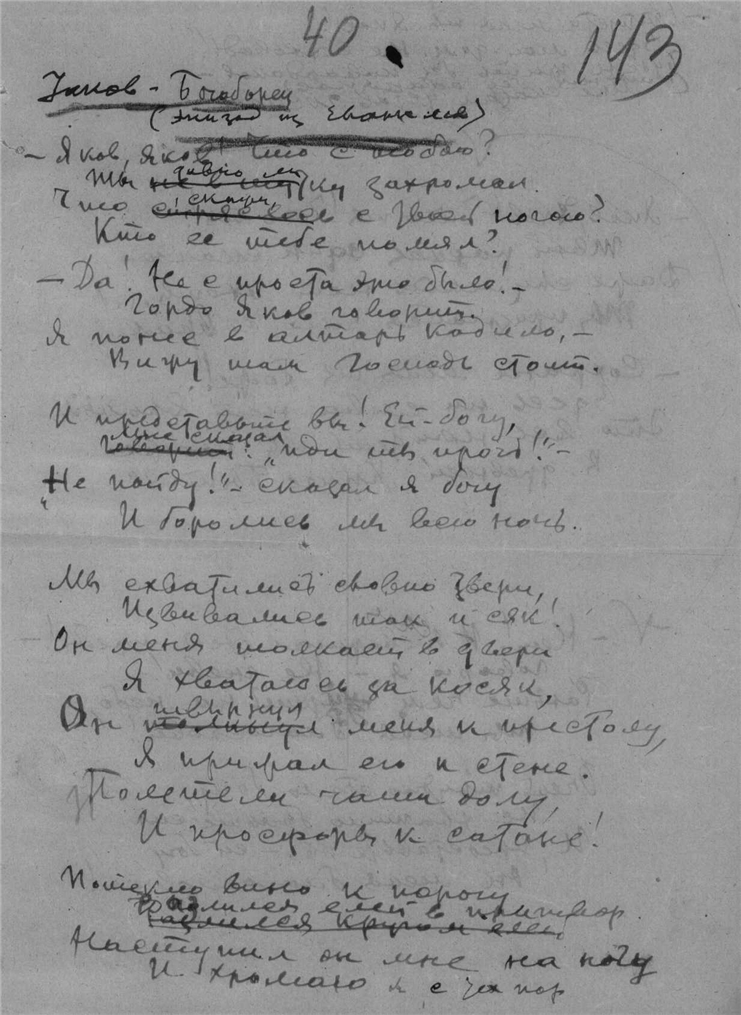 40
143
Яков - Богоборец
(эпизод из Евангелия)
— Яков, Яков! Что с тобою?
Ты давно ли захромал.
Что скажи, с твоей ногою?
Кто ее тебе помял?
— Да! Не с проста это было! –
Гордо Яков говорит.
Я понес в алтарь кадило, –
Вижу там Господь стоит.
И представьте вы! Ей-богу,
Мне сказал: „иди ты прочь!“ –
„Не пойду!“ – сказал я богу
И боролись мы всю ночь.
Мы схватились словно звери,
Извивались так и сяк!
Он меня толкает в двери
Я хватаюсь за косяк,
Он швырнул меня к престолу,
Я прижал его к стене.
Полетели чаши долу,
И просфоры к сатане!
Потекло вино к порогу
Разлился елей в притвор
Наступил он мне на ногу
И хромаю я с тех пор